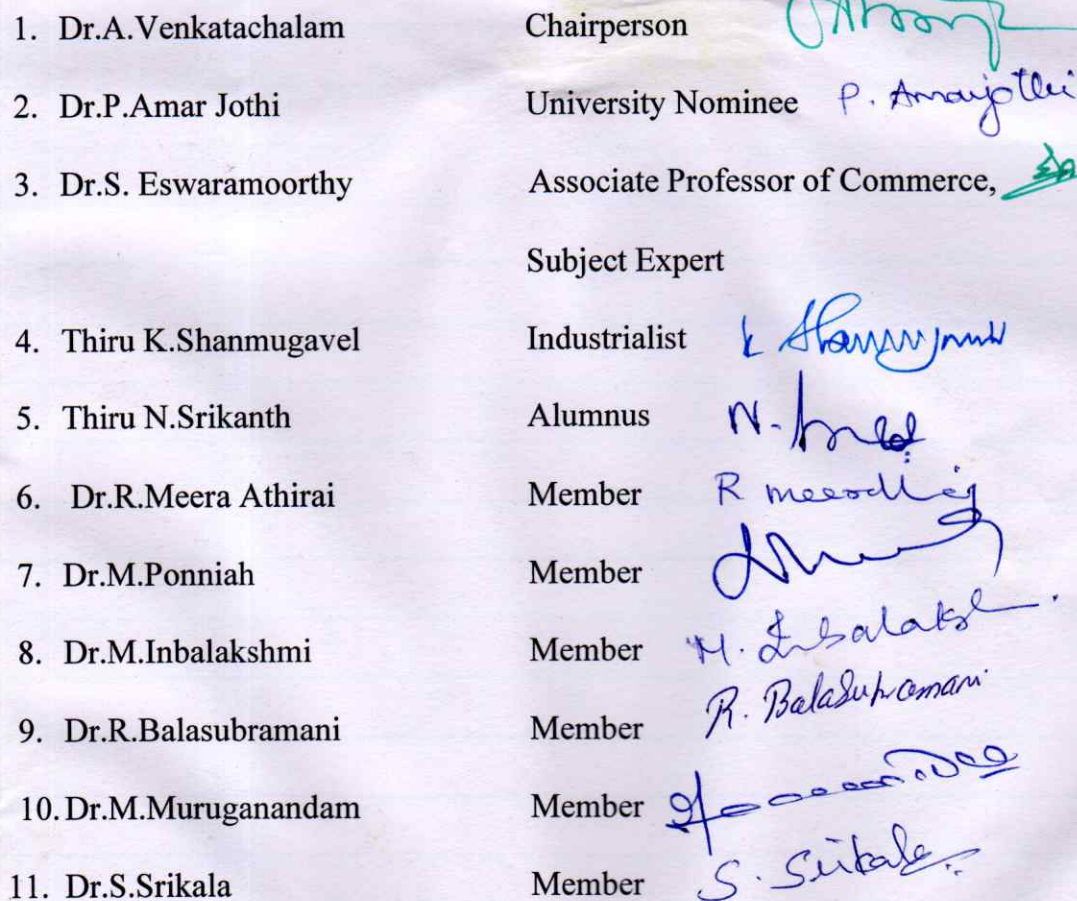 1. Dr.A.Venkatachalam Chairperson
2. Dr.P.Amar Jothi University Nominee P. Amarjothi
3. Dr.S. Eswaramoorthy Associate Professor of Commerce,
Subject Expert
4. Thiru K.Shanmugavel Industrialist
5. Thiru N.Srikanth Alumnus N.
6. Dr.R.Meera Athirai Member R
7. Dr.M.Ponniah Member
8. Dr.M.Inbalakshmi Member M.
9. Dr.R.Balasubramani Member R. Balasubramani
10. Dr.M.Muruganandam Member
11. Dr.S.Srikala Member S. Srikala